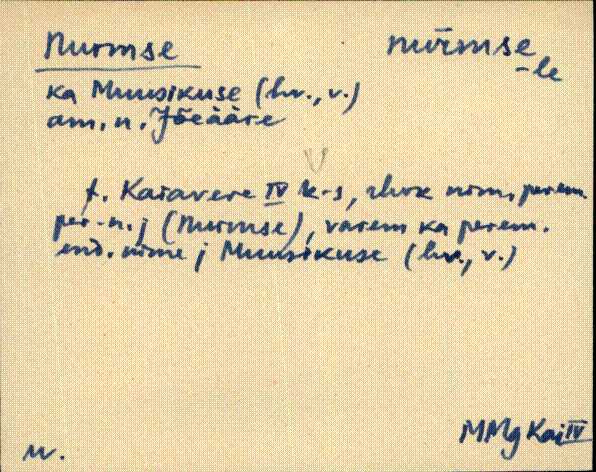 Nurmse nuŕmse
-le
ka Muusikuse (hv., v.)
am. n. Jõeääre
t. Kaiavere IV k-s, rhvk nim. perem.
per.-n. j (Nurmse), varem ka perem.
end. nime j Muusikuse (hv., v.)
MMg Kai IV